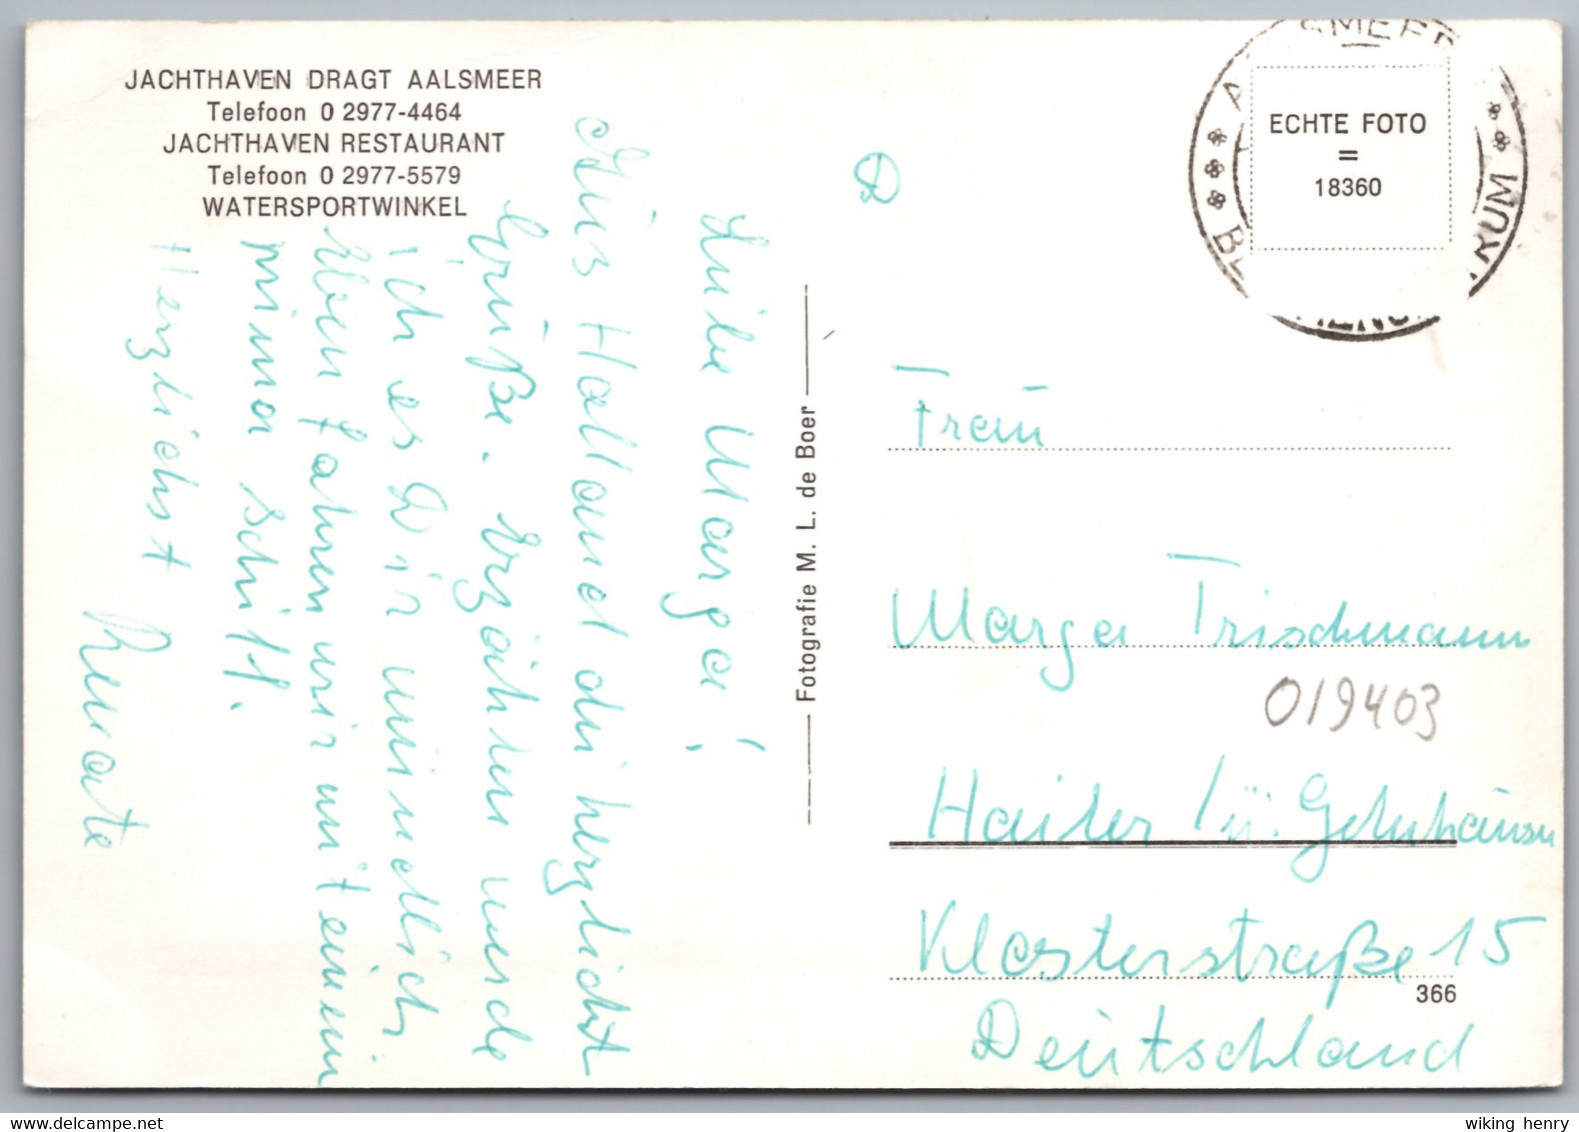 JACHTHAVEN DRAGT AALSMEER
Telefoon 0 2977-4464
JACHTHAVEN RESTAURANT
Telefoon 0 2977-5579
WATERSPORTWINKEL
Liebe Marga!
Aus Holland die herzlichst
Grüße. Erzählen werde
ich es Dir mündlich
Eben fahren wir mit einem
prima Schiff.
Herzlichst
Renate
Fotografie M. L. de Boer
D
SMEER
ECHTE FOTO
=
18360
RUM
Frau
Marga Trischmann
019403
Hailer / ü. Gelnhausen
Klosterstraße 15
366
Deutschland
www.delcampe.net
wiking henry